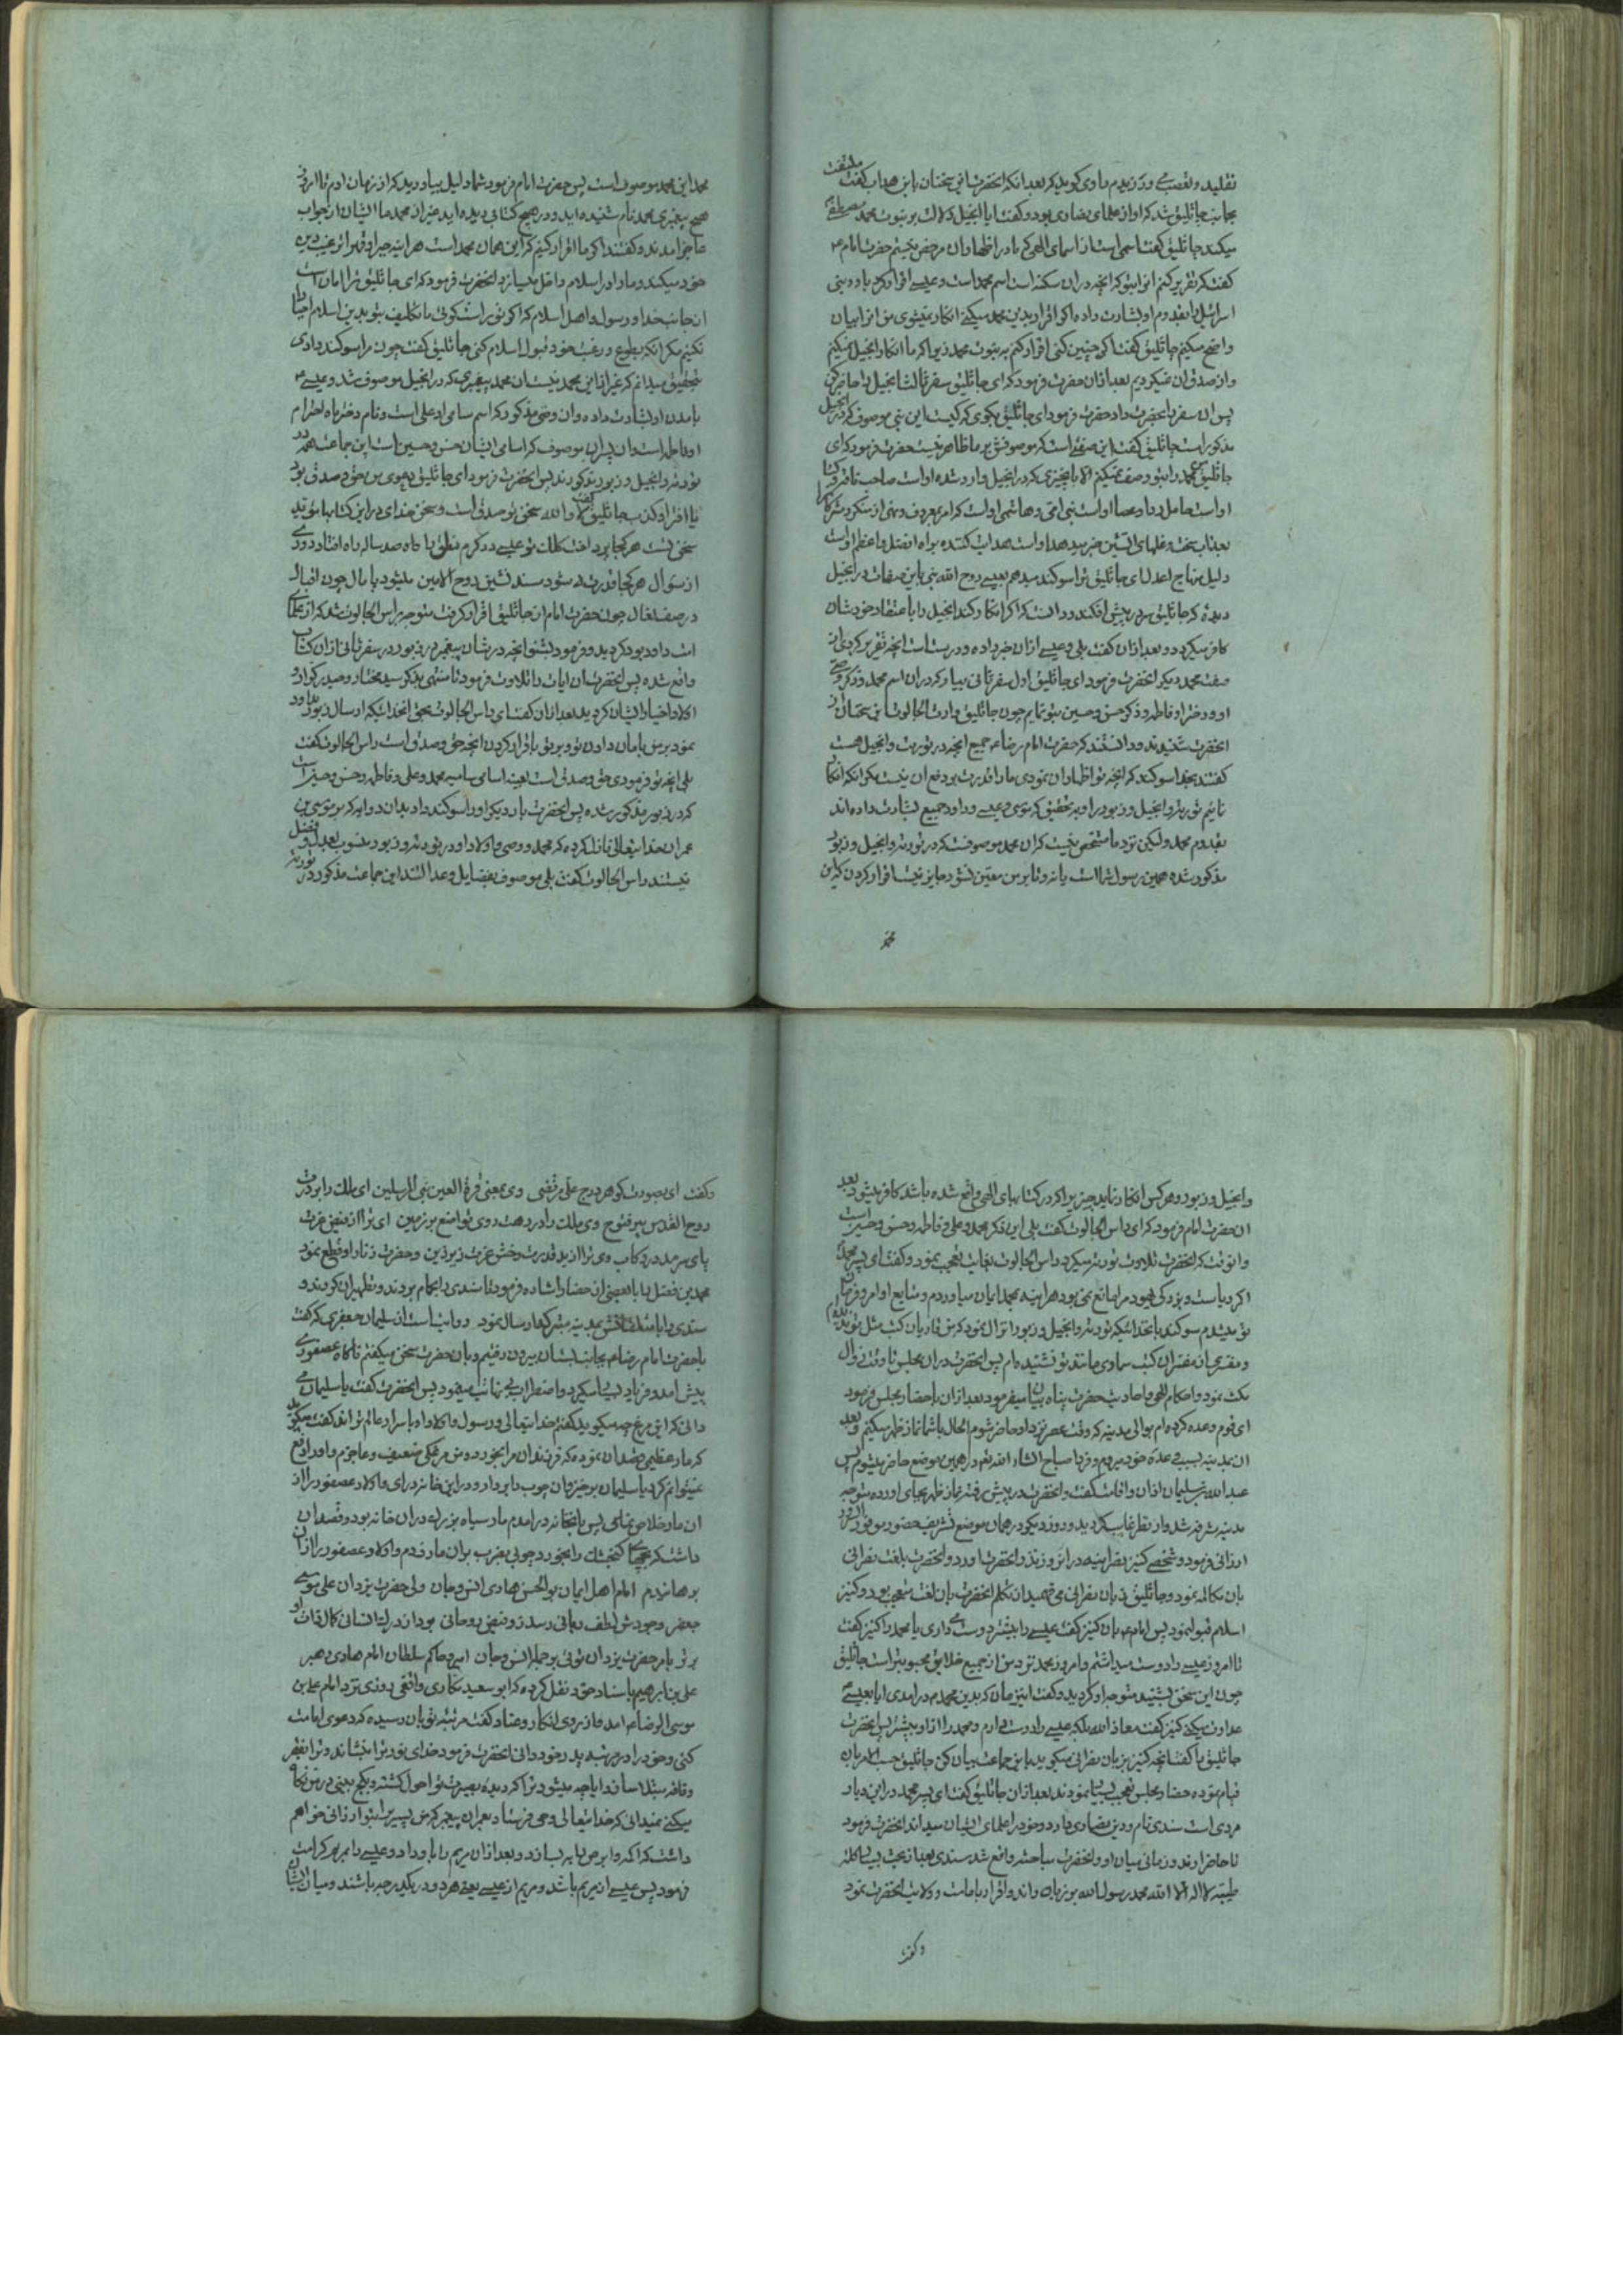 تقلید و تعصب می ورزیدم راوی کوید که بعد انکه انحضرت این سخنان با ابن هداب کفت ملتفت
بجانب جاثلیق شد که او از علمای نصاری بود و کفت ایا انجیل دلالت بر نبوت محمد مصطفی
میکند جاثلیق کفت اسمی است از اسمای الهی که ما در اظهار ان مرخص نیستیم حضرت امام ع
کفت که تقریر کنم از برای تو که انچه در ان سکنه است اسم محمد است و عیسی اقرار کرد باو و بنی
اسرائیل را بقدوم او بشارت داده اکر اقرار بدین محمد میکنی انکار نمیشوی من از برایت بیان
واضح میکنم جاثلیق کفت اکر چنین کنی اقرار کنم به نبوت محمد زیرا که ما انکار انجیل نمیکنیم
و از صدق ان نمیکردیم بعد ازان حضرت فرمود که ای جاثلیق سفر ثالث انجیل را حاضر کن
پس ان سفر را بحضرت داد حضرت فرمود ای جاثلیق بکوی که کیست این نبی موصوف که در انجیل
مذکور است جاثلیق کفت این صفتی است که موصوفش بر ما ظاهر نیست حضرت فرمود که ای
جاثلیق محمد را بتو وصف نمیکنم الا بانچیزی که در انجیل وارد شده او است صاحب ناقه و کسا
او است حامل ردا و عصا او است نبی امی و هاشمی او است که امر بمعروف و نهی از منکر و شرکا
بعذاب سخت و غلهای اتشین خبر میدهد او است هدایت کننده براه افضل و اعظم او است
دلیل منهاج اعدل ای جاثلیق ترا سوکند میدهم بعیسی روح الله نبی باین صفات در انجیل
دیده که جاثلیق سر در پیش افکند و دانست که اکر انکار کند انجیل را باعتقاد خودشان
کافر میکردد و بعد ازان کفت بلی و عیسی ازان خبر داده و درست است انچه تقریر کردی از
صفت محمد دیکر انحضرت فرمود ای جاثلیق اول سفر ثانی بیار که در ان اسم محمد و ذکر وصی
او و دختر او فاطمه و ذکر حسن و حسین بتو نمایم چون جاثلیق و راس الجالوت این سخنان از
انحضرت شنیدند و دانستند که حضرت امام رضا ع جمیع انچه در توریت و انجیل هست
کفتند بخدا سوکند که انچه تو اظهار ان نمودی ما را قدرت بر دفع ان نیست مکر انکه انکار
نائیم توریة و انجیل و زبور را و بتحقیق که موسی و عیسی و داود جمیع بشارت داده اند
بقدوم محمد ولیکن نزد ما مشخص نیست که ان محمد موصوف که در توریة و انجیل و زبور
مذکور شده همین رسول شما است یا نه و تا بر من معین نشود جایز نیست اقرار کردن که این
محمد
محمد این محمد موصوف است پس حضرت امام فرمود شما دلیل بیاورید که از زمان ادم تا امروز
هیچ پیغمبری محمد نام شنیده اید و در هیچ کتابی دیده اید غیر از محمد ما ایشان از جواب
عاجز امدند و کفتند اکر ما اقرار کنیم که این همان محمد است هر اینه جبرا و قهرا ترغیب دین
خود میکند و ما را در اسلام داخل میسازد انحضرت فرمود که ای جاثلیق ترا امان است
از جانب خدا و رسول و اهل اسلام که اکر تو راست کوئی ما تکلیف بتو بدین اسلام
نکنیم مکر انکه بطوع و رغبت خود قبول اسلام کنی جاثلیق کفت چون مرا سوکند دادی
بتحقیق میدانم که غیر از این محمد نیست ان محمد پیغمبری که در انجیل موصوف شد و عیسی ع
بامدن او بشارت داده و ان وصی مذکور که اسم سامی او علی است و نام دختر با احترام
او فاطمه است و ان پسران موصوف که اسامی ایشان حسن و حسین است این جماعت همه در
توریة و انجیل و زبور مذکورند پس انحضرت فرمود ای جاثلیق دعوی من خود صدق بود
یا افترا و کذب جاثلیق کفت لا والله سخن تو صدق است و سخن خدای در این کتابها مؤید
سخن تست هر کجا پرداخت کلمات تو عیسی در کرم نطق با کاه صد ساله راه افتاد دوری
از سؤال هر کجا قدرت شود مسند نشین روح الامین میشود پامال چون اقبال
در صف نعال چون حضرت امام از جاثلیق اقرار کرفت متوجه راس الجالوت شد که از علمای
امت داود بود کردید و فرمود بشنو انچه در شان پیغمبر در زبور در سفر ثانی از ان کتاب
واقع شده پس انحضرت ان ایات را تلاوت فرمود تا منتهی بذکر سید مختار و حیدر کرار و
اولاد اخیار ایشان کردید بعد ازان کفت ای راس الجالوت بحق انخدائیکه ارسال زبور بداود
نمود بر من بامان دادن تو و بر تو باقرار کردن انچه حق و صدق است راس الجالوت کفت
بلی انچه تو فرمودی حق و صدق است بعینه اسامی سامیه محمد و علی و فاطمه و حسن و حسین است
که در زبور مذکور شده پس انحضرت بار دیکر او را سوکند داد بدان ده ایه که بر موسی بن
عمران خدایتعالی نازل کرده که محمد و وصی و اولاد او در توریة و زبور منسوب بعدل و فضل
نیستند راس الجالوت کفت بلی موصوف بفضایل و عدالتند این جماعت مذکور در توریة
و انجیل و زبور و هر کس انکار نماید چیزیرا که در کتابهای الهی واقع شده باشد کافر میشود بعد
ان حضرت امام فرمود که ای راس الجالوت کفت بلی این ذکر محمد و علی و فاطمه و حسن و حسین است
و انوقت که انحضرت تلاوت توریة میکرد راس الجالوت بغایت تعجب نمود و کفت ای پسر محمد
اکر ریاست و بزرکی یهود مرا مانع نمی بود هر اینه بمحمد ایمان میاوردم و متابع اوامر و فرمان
تو میشدم سوکند بانخدائیکه توریة و انجیل و زبور را نزال نمود که من قاریان کتب مثل تو ندیدم
و مفسری از مفسران کتب سماوی مانند تو نشنیده ام پس انحضرت دران مجلس تا وقت زوال
مکث نمود و احکام الهی و احادیث حضرت پناه را بیان میفرمود بعد ازان باحضار مجلس فرمود
ای قوم وعده کرده ام بوالی مدینه که وقت عصر نزد او حاضر شوم الحال باشما نماز ظهر میکنم و بعد
ان بمدینه بسبب وعدۀ خود میروم و فردا صباح انشاء الله تع در همین موضع حاضر میشوم پس
عبدالله بن سلیمان اذان و اقامت کفت و انحضرت در پیش رفته نماز ظهر بجای اورده متوجه
مدینه مشرفه شد و از نظر غایب کردید و روز دیکر در همان موضع تشریف حضور موفور السرور
ارزانی فرمود و شخصی کنیز نصرانیه در انروز نزد انحضرت اورد و انحضرت بلغت نصرانی
بان مکالمه نمود و جاثلیق زبان نصرانی می فهمید از تکلم انحضرت بان لغت متعجب بود و کنیز
اسلام قبول نمود پس امام ع بان کنیز کفت عیسی را بیشتر دوست می داری یا محمد را کنیز کفت
تا امروز عیسی را دوست میداشتم و امروز محمد نزد من از جمیع خلایق محبوبتر است جاثلیق
چون این سخن بشنید متوجه او کردید و کفت این زمان که بدین محمد درامدی ایا بعیسی
عداوت میکنی کنیز کفت معاذ الله بلکه عیسی را دوست دارم و محمد را از او بیشتر پس انحضرت
جاثلیق را کفت انچه کنیز بزبان نصرانی میکوید باین جماعت بیان کن جاثلیق حسب الامر بان
قیام نموده حضار مجلس تعجب بسیار نمودند بعد ازان جاثلیق کفت ای پسر محمد در این دیار
مردی است سندی نام و دین نصاری دارد و خود را علمای ایشان میداند انحضرت فرمود
تا حاضر اورند و زمانی میان او و انحضرت مباحثه واقع شد سندی بعد از بحث بسیار کلمه
طیبه لا اله الا الله محمد رسول الله بر زبان راند و اقرار بامامت و ولایت انحضرت نمود
و کفت
و کفت ای بصورت کوهر درج علی مرتضی وی بمعنی قرة العین نبی المرسلین ای ملک را بر درت
روح القدس پیر فتوح وی ملک را در رهت روی تواضع بر زمین ای ترا از فیض عزت
پای سرمد در رکاب وی ترا از ید قدرت رخش عزت زیر زین و حضرت زنار او قطع نمود
محمد بن فضل را با بعضی از حضار اشاره فرمود تا سندی را بحمام بردند و تطهیر ان کردند و
سندی را با متعلقانش بمدینه مشرفه ارسال نمود روایت است از سلیمان جعفری که کفت
با حضرت امام رضا ع بجانب بستان بیرون رفتیم و بان حضرت سخن میکفتم ناکاه عصفوری
پیش امد و فریاد بسیار میکرد و اضطراب بی نهایت مینمود پس انحضرت کفت یا سلیمان می
دانی که این مرغ چه میکوید کفتم خدایتعالی و رسول و اولاد او باسرار عالم تر اند کفت میکوید
که مار عظیمی قصد ان نموده که فرزندان مرا بخورد و من مرغکی ضعیف و عاجزم و او را دفع
نمیتوانم کرد یا سلیمان برخیز و ان چوب را بردار و در این خانه درای و اولاد عصفور را از
ان مار خلاص نمای پس بانخانه درامدم مار سیاه بزرک در ان خانه بود و قصد ان
داشت که بچهای کنجشک را بخورد چوبی بضرب بر ان مار زدم و اولاد عصفور را از ان
برهانیدم امام اهل ایمان بوالحسن هادی انس و جان ولی حضرت یزدان علی موسی
جعفر وجودش لطف ربانی رسد زو فیض روحانی بود از درک انسانی کمال ذات او
برتر بامر حضرت یزدان توئی بر جمله انس و جان امیر و حاکم سلطان امام هادی و رهبر
علی بن ابرهیم باسناد خود نقل کرده که ابو سعید مکاری واقفی روزی نزد امام علی بن
موسی الرضا ع امد و از روی انکار و عناد کفت مرتبه تو بان رسیده که دعوی امامت
کنی و خود را در مرتبه پدر خود دانی انحضرت فرمود خدای نور ترا بنشاند و ترا بفقر
و فاقه مبتلا سازد ایا چه میشود ترا که دیده بصیرت تو احول کشته و بکج بینی در من نکاه
میکنی نمیدانی که خدایتعالی وحی فرستاد بعمران پیغمبر که من پسر بتو ارزانی خواهم
داشت که اکمه و ابرص را به سازد و بعد ازان مریم را باو داد و عیسی را بمریم کرامت
فرمود پس عیسی از مریم باشد و مریم از عیسی یعنی هر دو در یکدرجه باشند و میان ایشان